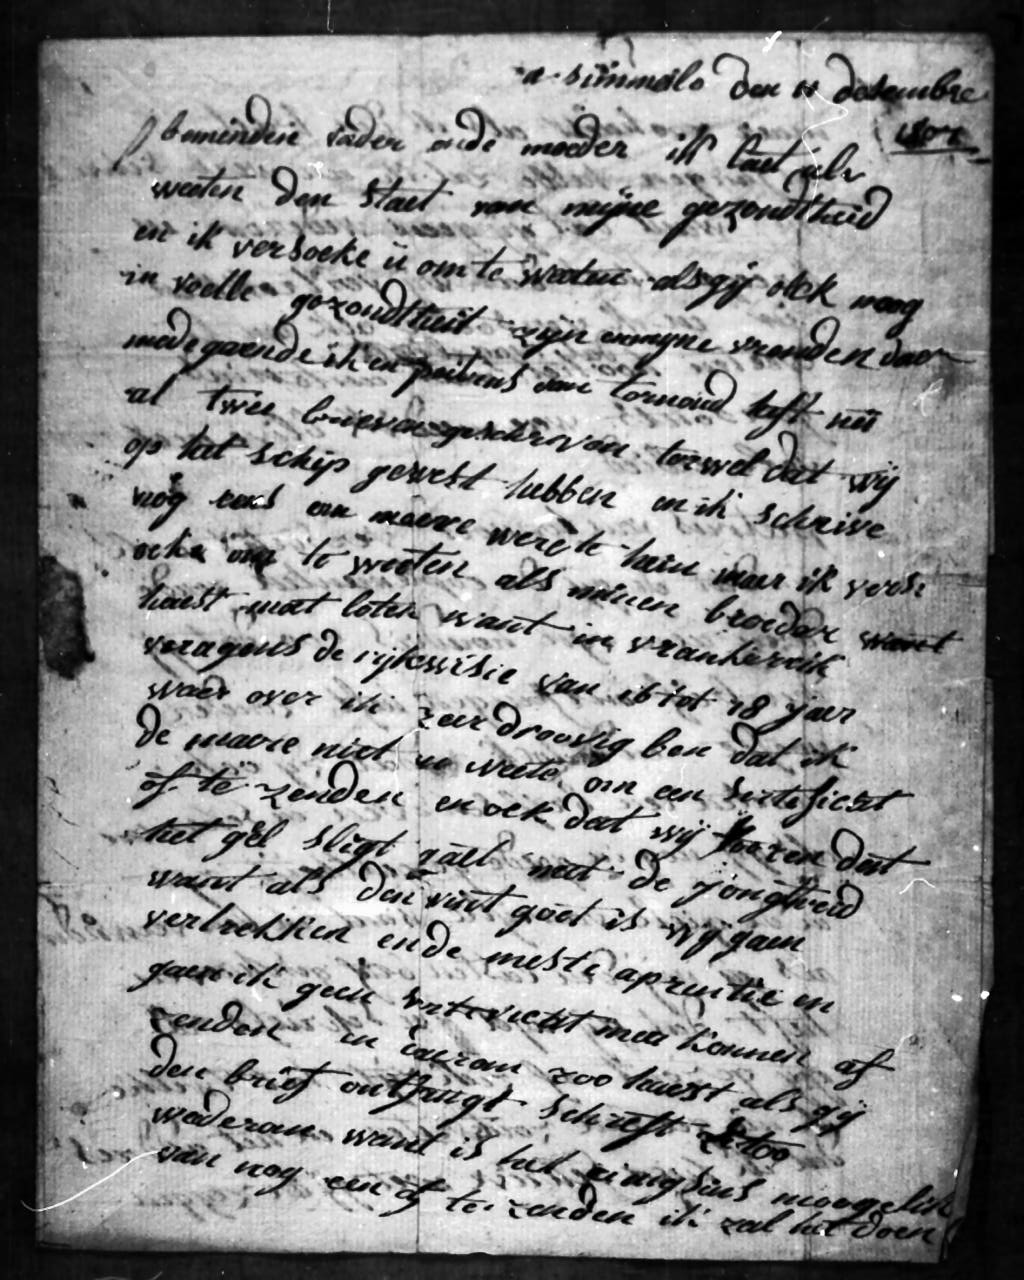 a simmalo den 11 desembre
1807
beminden vader ende moeder ik laet ulr
weeten den staet van mijne gezondtheid
en ik versoeke u om te weeten als gij oek noog
in volle gezondtheit zijn en mijne vrenden daer
medegaende ik en van tornoud heft nu
al twee brieven geschreven terwel dat wij
op het schip gewest hebben en ik schrive
nog eens om meere werck te hain maer ik voor
oeke om te weeten als minen broeder want
haest moet loten want in vrankerrik
veragens de rijkwisie van 16 tot 18 jaer
waer over ik zeer droovig ben dat ik
de maere niet en weete om een sertificat
of te zenden en oek dat wij hooren dat
het gel sligt gaet met de jongheid
want als den vint goet is wij gaen
vertrekken ende meste aprentie en
gaen ik geen meer konnen of
zenden en daerom zoo haest als gij
den brief ontfangt schreft too
wederom want is het einigsins moogelik
van nog een of te zenden ik zal het doen